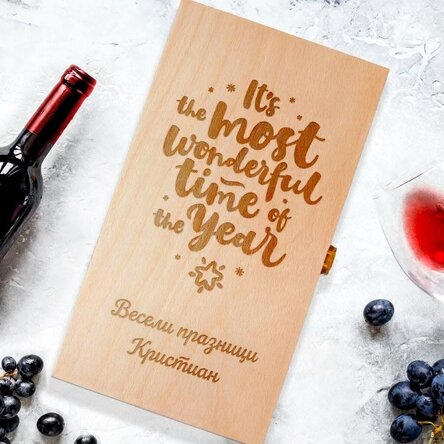 It's
the most
wonderful
time of
the Year
Весели празници
Кристиан